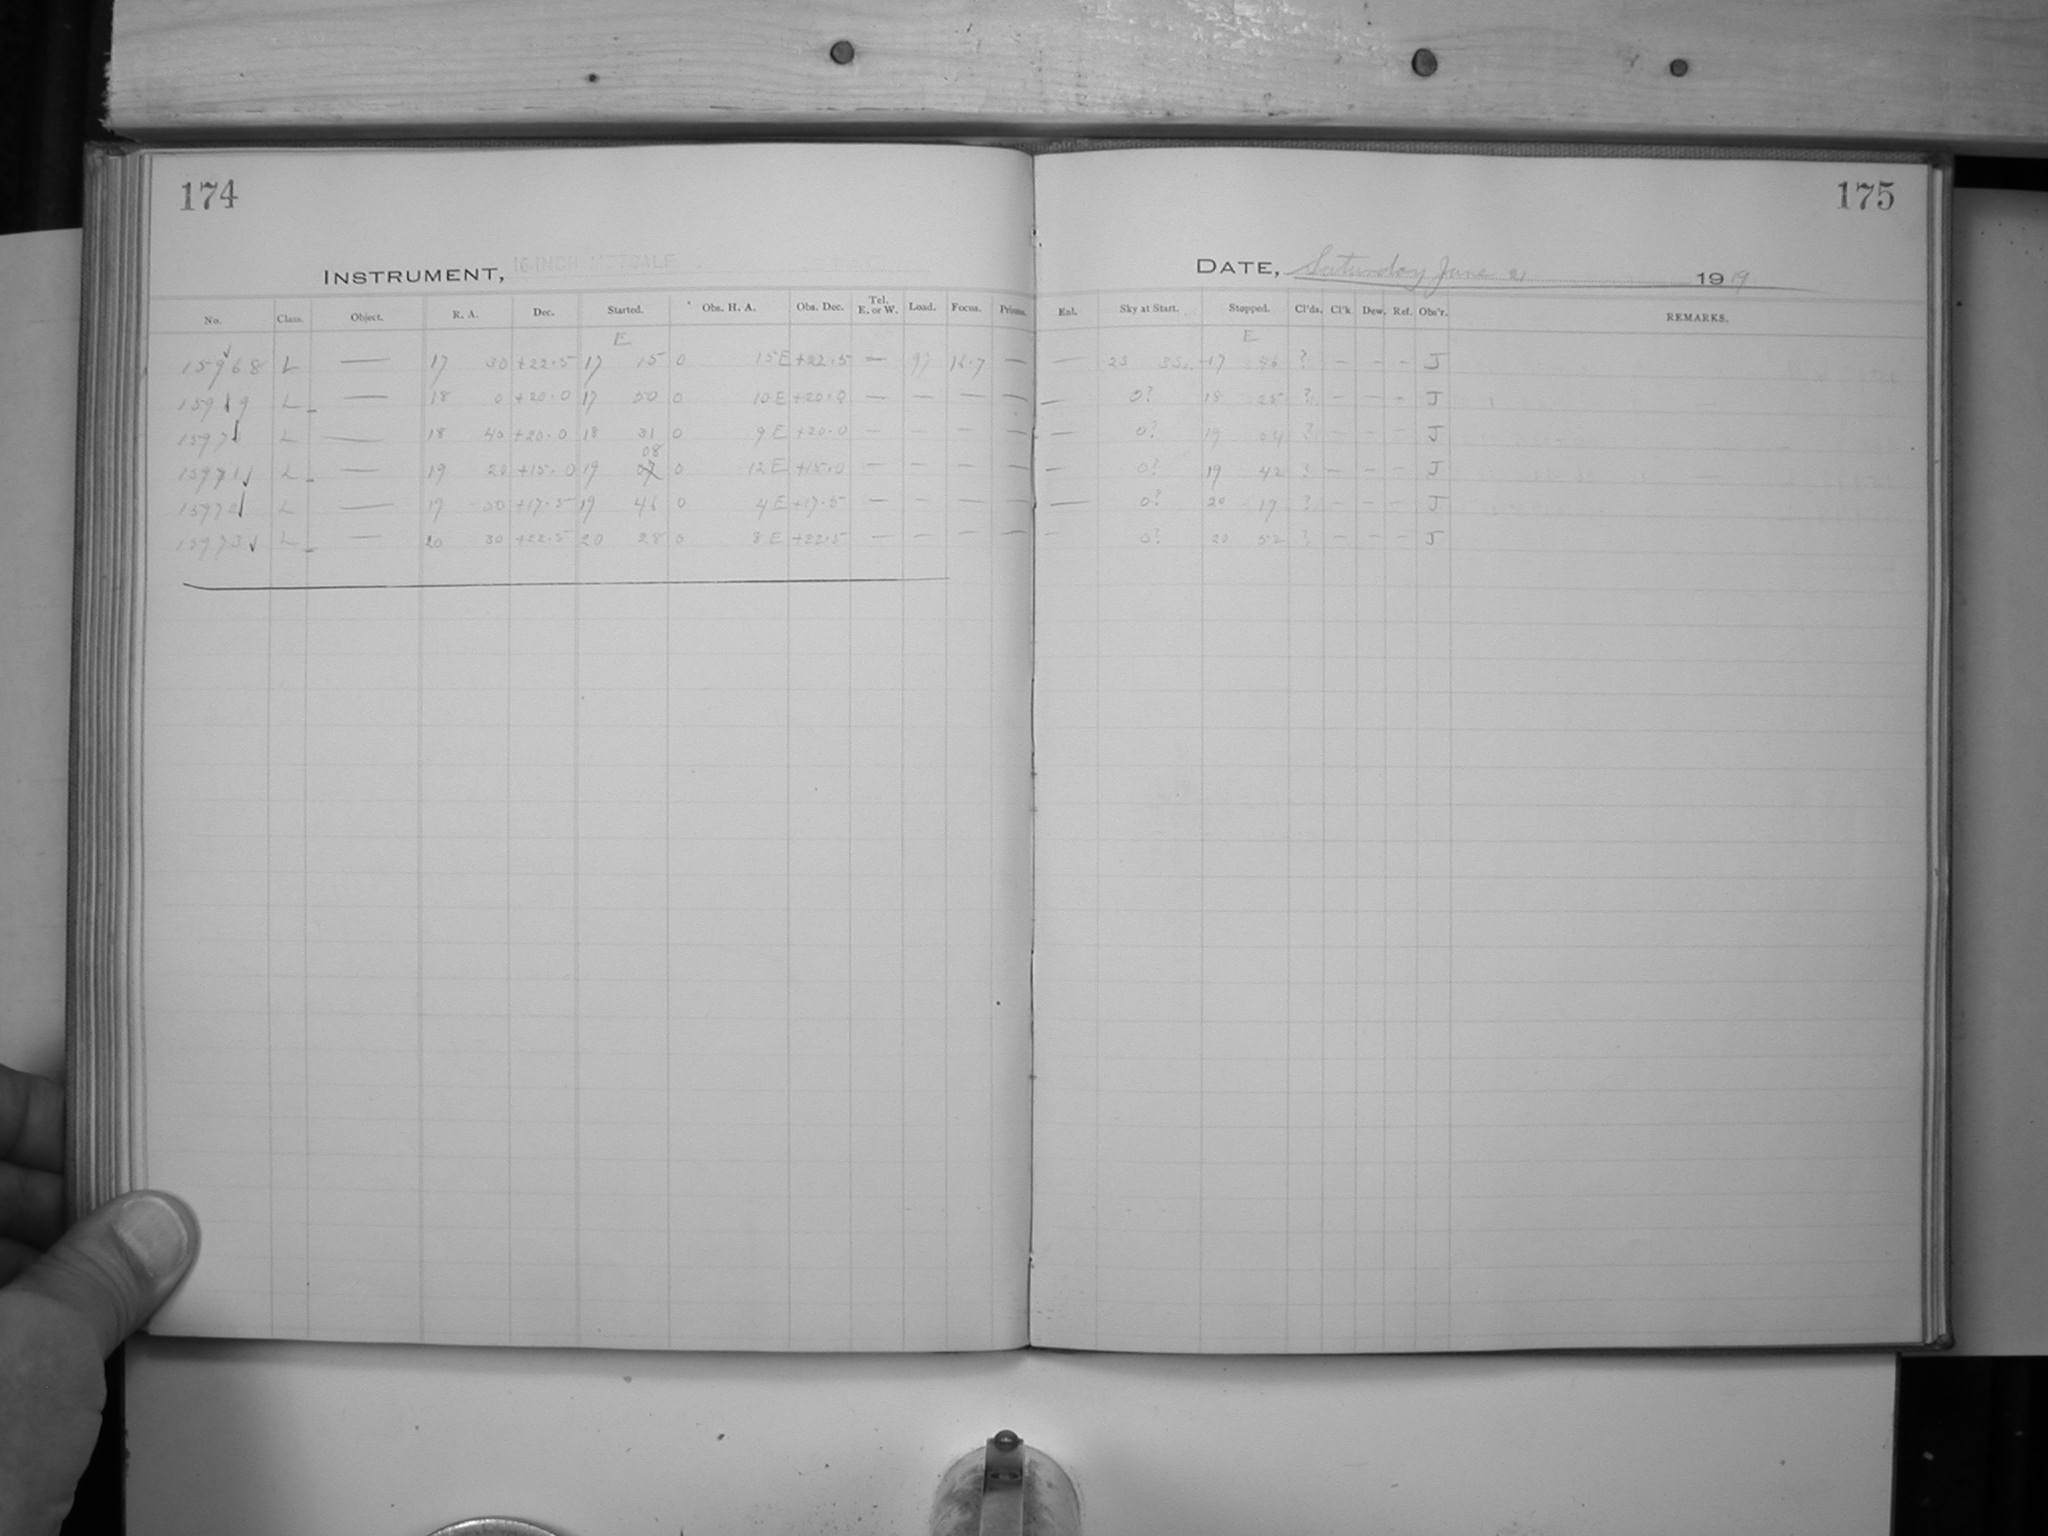 174
175
INSTRUMENT, 16-INCH METCALF
DATE, Saturday June 21 1919
No. Class. Object. R. A. Dec. Started. Obs. H. A. Obs. Dec. Tel. E. or W. Load. Focus. Prisms. Enl. Sky at Start. Stopped. Cl'ds. Cl'k Dew. Ref. Obs'r. REMARKS.
E E
15968 L — 17 30 +22.5 17 15 0 15 E +22.5 — 97 16.7 — — 23 17 46 ? — — — J
L — 18 0 +20.0 17 50 0 10 E +20.0 — — — — — 0? 18 25 ? — — — J
L — 18 40 +20.0 18 31 0 9 E +20.0 — — — — — 0? 19 04 ? — — — J
08
15971 L — 19 20 +15.0 19 07 0 12 E +15.0 — — — — — 0? 19 42 ? — — — J
15972 L — 19 50 +17.5 19 46 0 4 E +17.5 — — — — — 0? 20 19 ? — — — J
15973 L — 20 30 +22.5 20 28 0 8 E +22.5 — — — — — 0? 20 52 ? — — — J